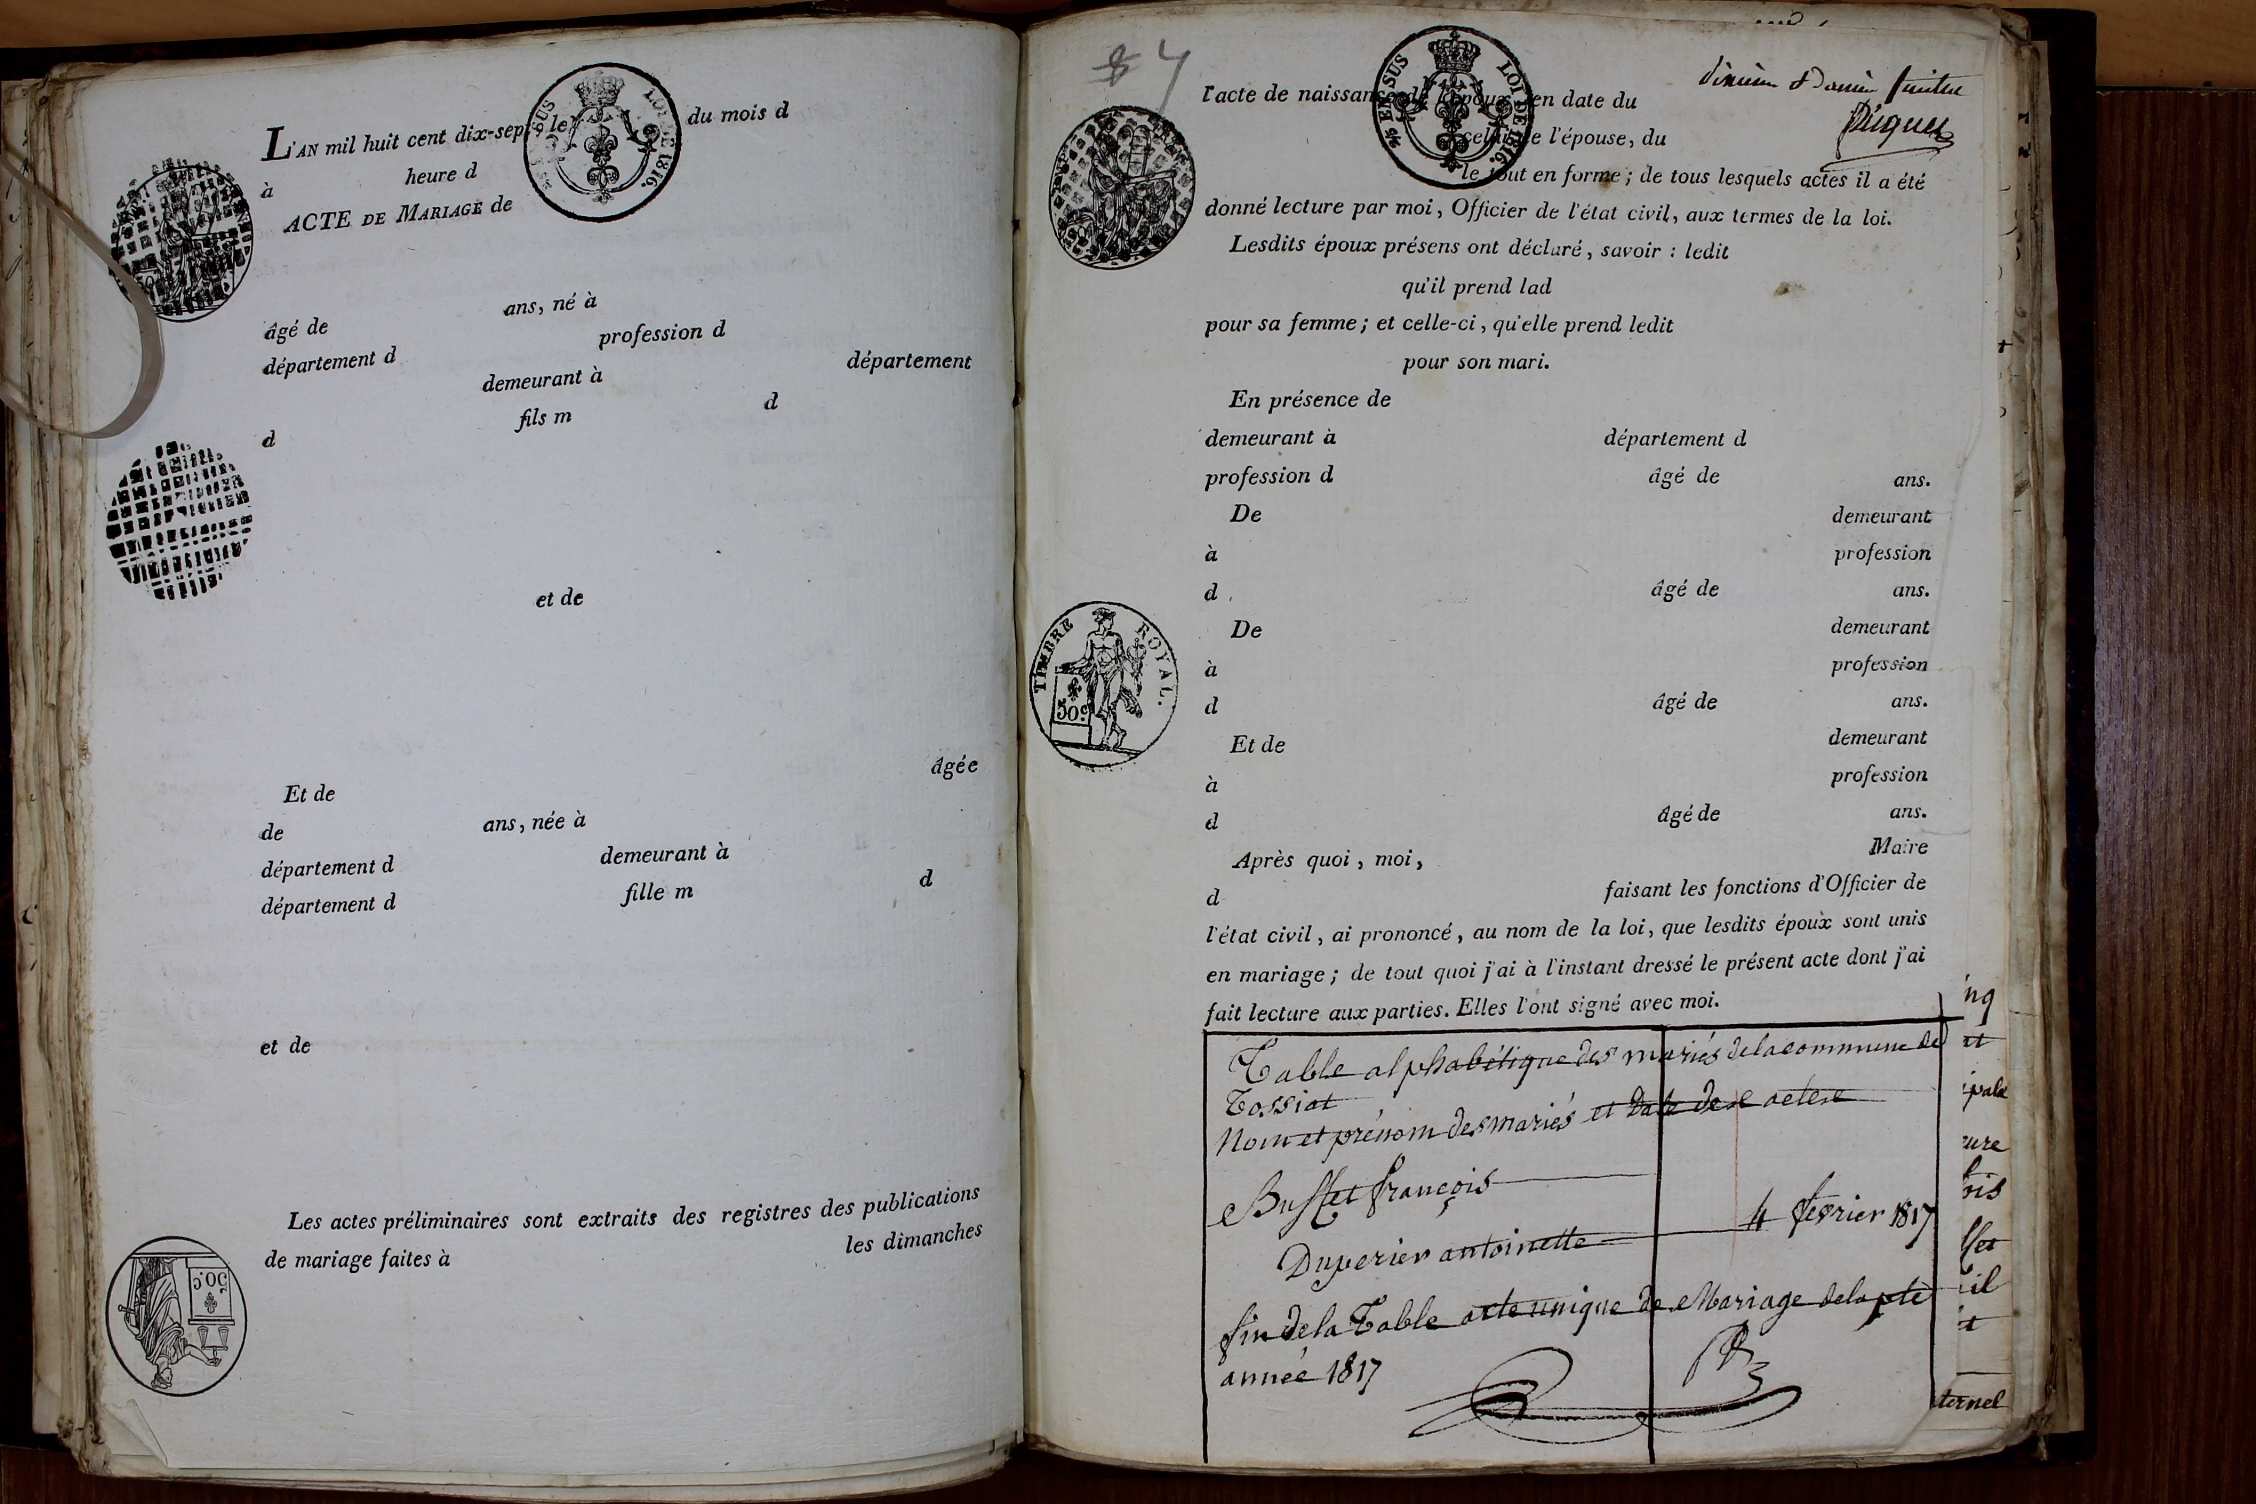 L'AN mil huit cent dix-sept, le du mois d
à heure d
ACTE DE MARIAGE de
âgé de ans, né à
département d profession d
demeurant à département
d fils m d
et de
Et de âgée
de ans, née à
département d demeurant à
département d fille m d
et de
Les actes préliminaires sont extraits des registres des publications
de mariage faites à les dimanches
50c
EN SUS LOI DE 1816.
4
l'acte de naissance de l'époux, en date du
celui de l'épouse, du
le tout en forme; de tous lesquels actes il a été
donné lecture par moi, Officier de l'état civil, aux termes de la loi.
Lesdits époux présens ont déclaré, savoir : ledit
qu'il prend lad
pour sa femme; et celle-ci, qu'elle prend ledit
pour son mari.
En présence de
demeurant à département d
profession d âgé de ans.
De demeurant
à profession
d âgé de ans.
De demeurant
à profession
d âgé de ans.
Et de demeurant
à profession
d âgé de ans.
Après quoi, moi, Maire
d faisant les fonctions d'Officier de
l'état civil, ai prononcé, au nom de la loi, que lesdits époux sont unis
en mariage; de tout quoi j'ai à l'instant dressé le présent acte dont j'ai
fait lecture aux parties. Elles l'ont signé avec moi.
EN SUS LOI DE 1816.
TIMBRE ROYAL.
50c.
Table alphabétique des mariés de la commune de
Tossiat
Nom et prénom des mariés et date des actes
Buffet françois
Duperier antoinette 4 fevrier 1817
fin de la Table acte unique de Mariage de la pte
année 1817